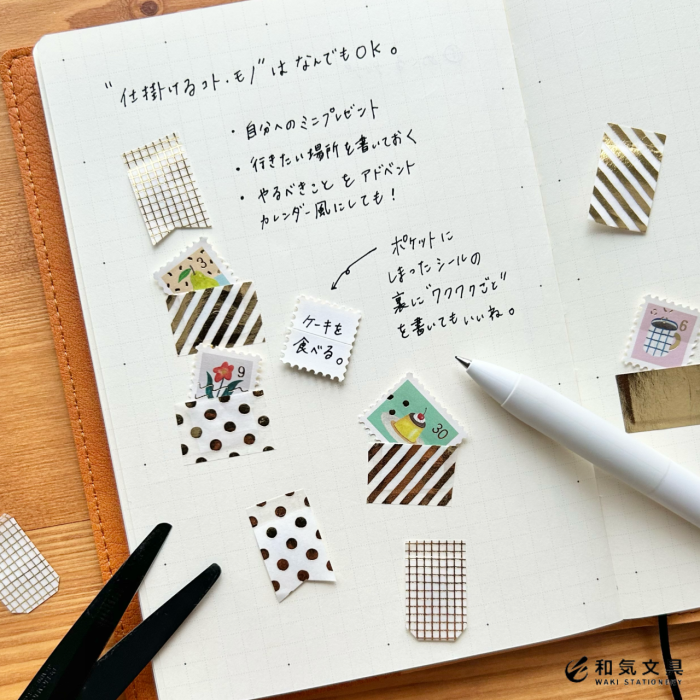 "仕掛けるコト・モノ"はなんでもOK。
・自分へのミニプレゼント
・行きたい場所を書いておく
・やるべきことをアドベント
カレンダー風にしても!
ポケットに
しまったシールの
裏に"ワクワクごと"
を書いてもいいね。
3
ケーキを
食べる。
9
30
6
和気文具
WAKI STATIONERY